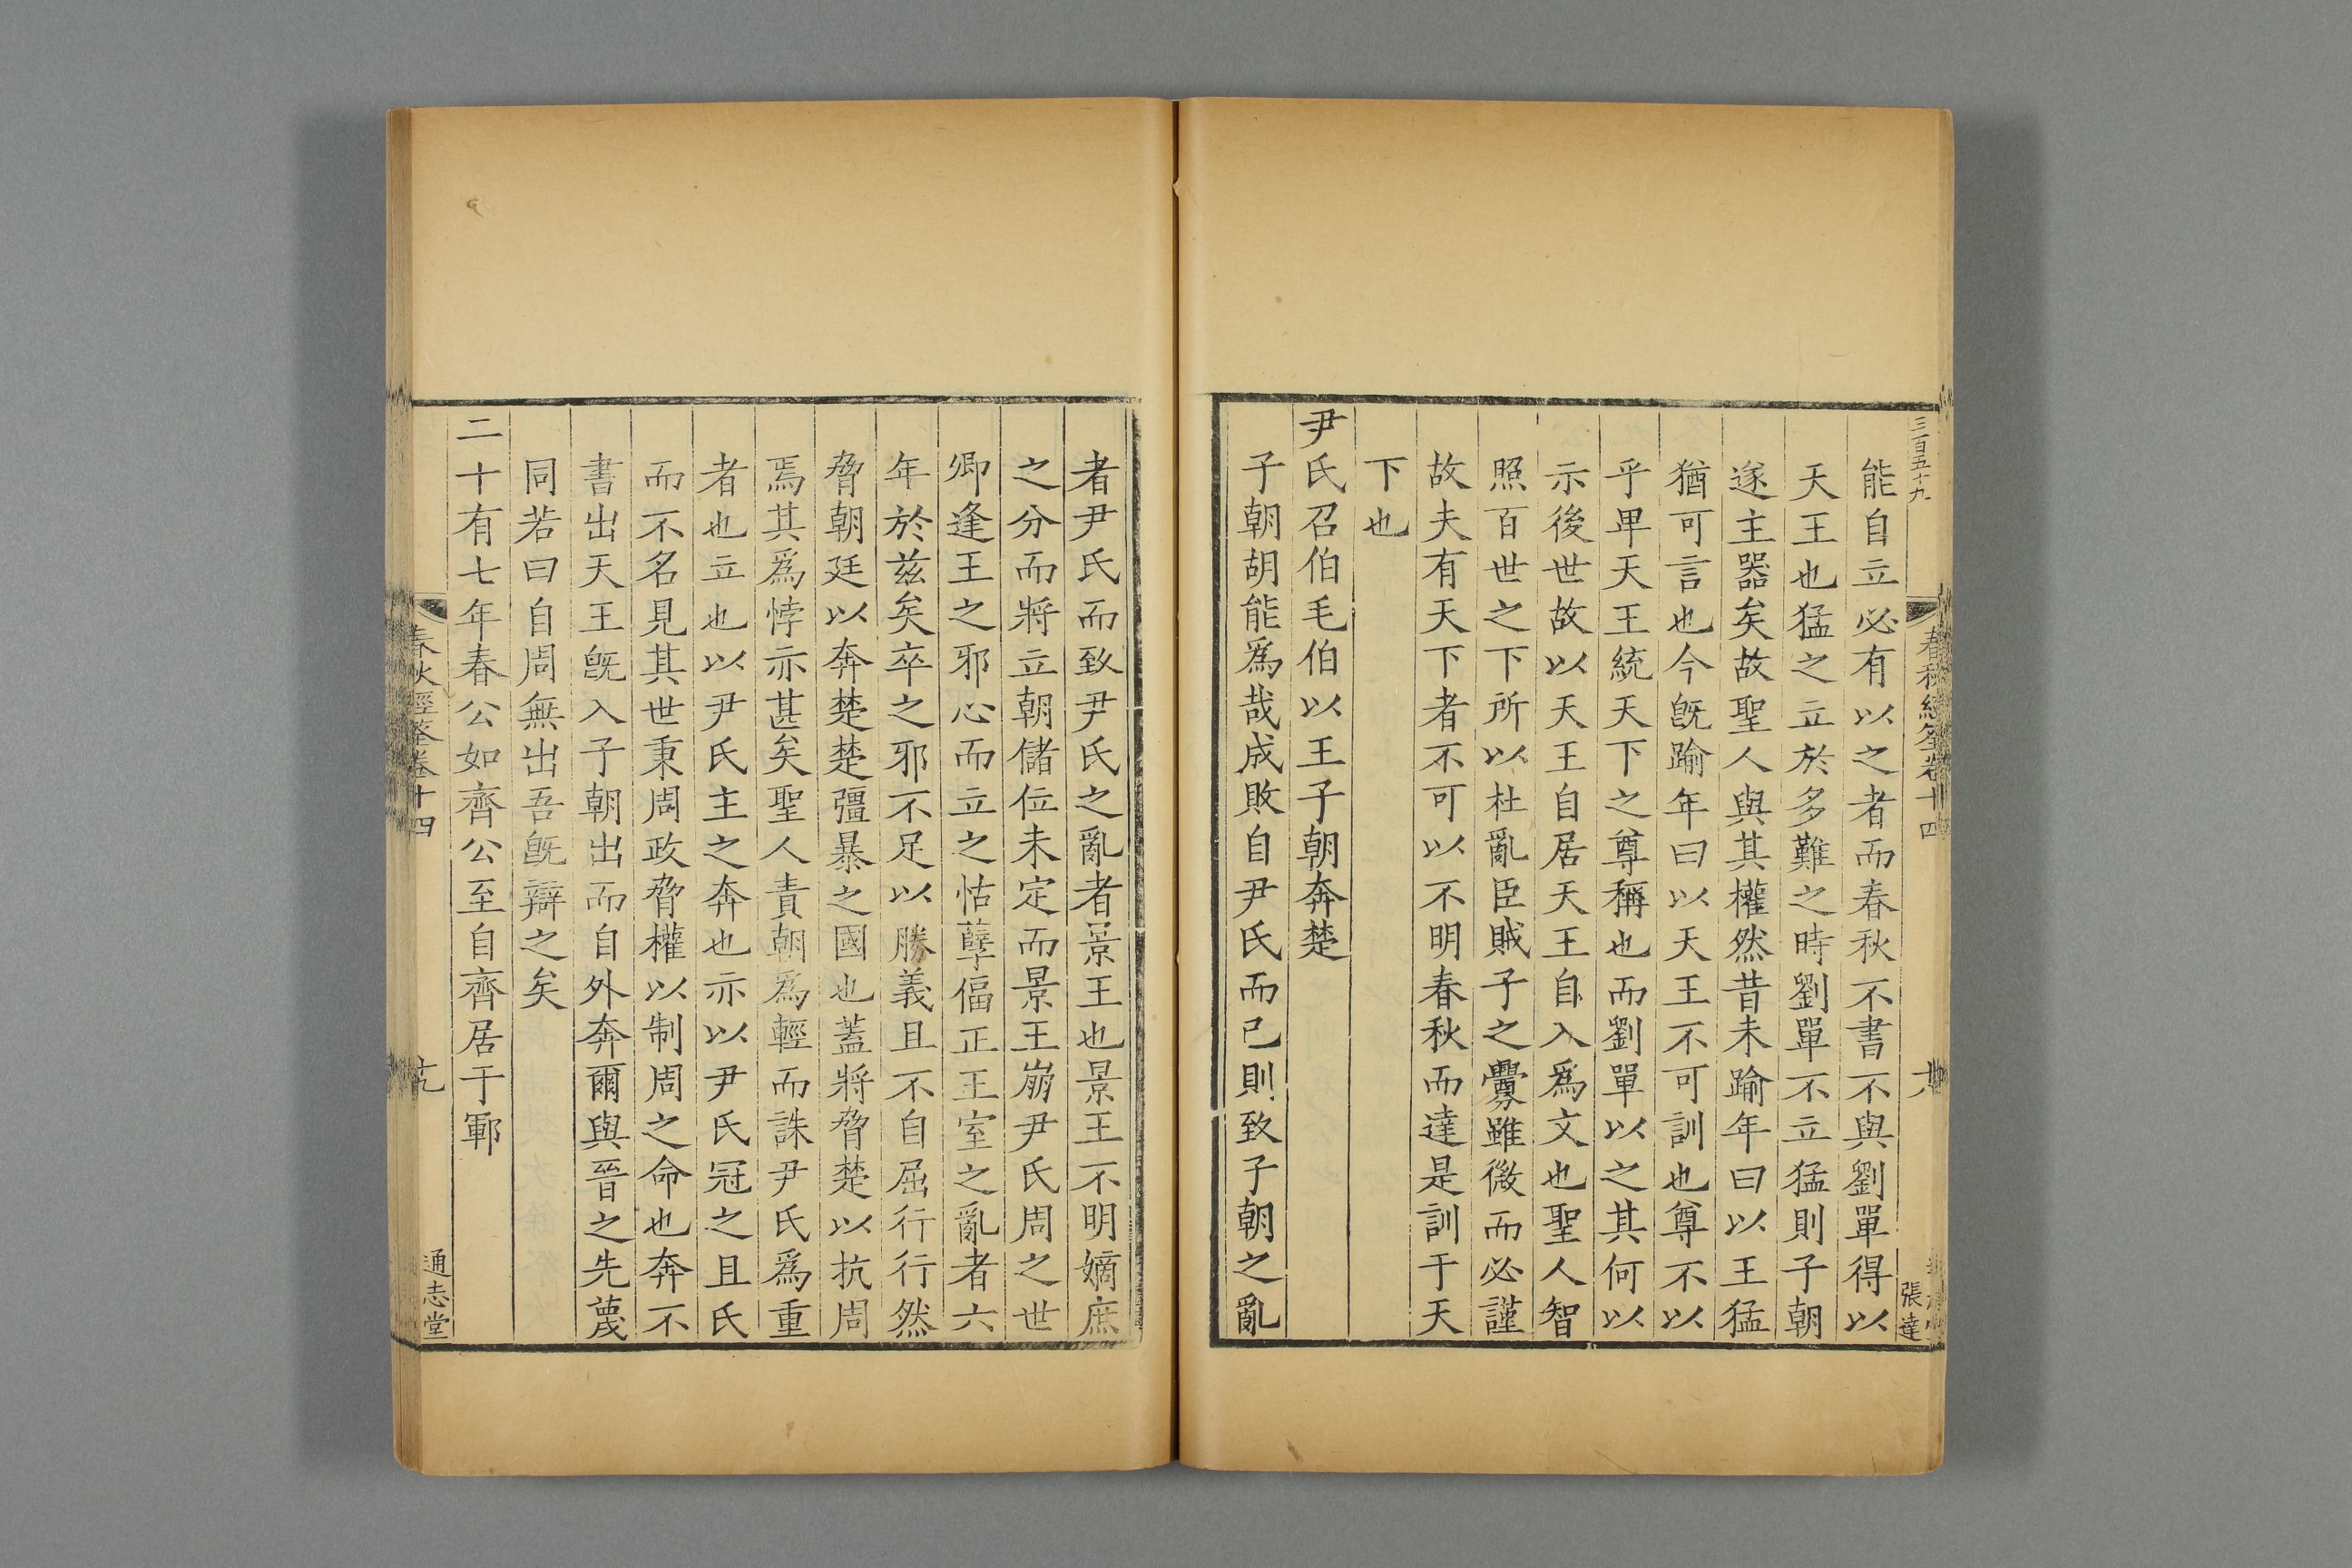 三百五十九
春秋經筌卷十四
張達
能自立必有以之者而春秋不書不與劉單得以
天王也猛之立於多難之時劉單不立猛則子朝
遂主器矣故聖人與其權然昔未踰年曰以王猛
猶可言也今旣踰年曰以天王不可訓也尊不以
乎卑天王統天下之尊稱也而劉單以之其何以
示後世故以天王自居天王自入爲文也聖人智
照百世之下所以杜亂臣賊子之釁雖微而必謹
故夫有天下者不可以不明春秋而達是訓于天
下也
尹氏召伯毛伯以王子朝奔楚
子朝胡能爲哉成敗自尹氏而已則致子朝之亂
者尹氏而致尹氏之亂者景王也景王不明嫡庶
之分而將立朝儲位未定而景王崩尹氏周之世
卿逢王之邪心而立之怙孽偪正王室之亂者六
年於兹矣卒之邪不足以勝義且不自屈行行然
脅朝廷以奔楚楚彊暴之國也蓋將脅楚以抗周
焉其爲悖亦甚矣聖人責朝爲輕而誅尹氏爲重
者也立也以尹氏主之奔也亦以尹氏冠之且氏
而不名見其世秉周政脅權以制周之命也奔不
書出天王旣入子朝出而自外奔爾與晉之先蔑
同若曰自周無出吾旣辯之矣
二十有七年春公如齊公至自齊居于鄆
春秋經筌卷十四
十九
通志堂